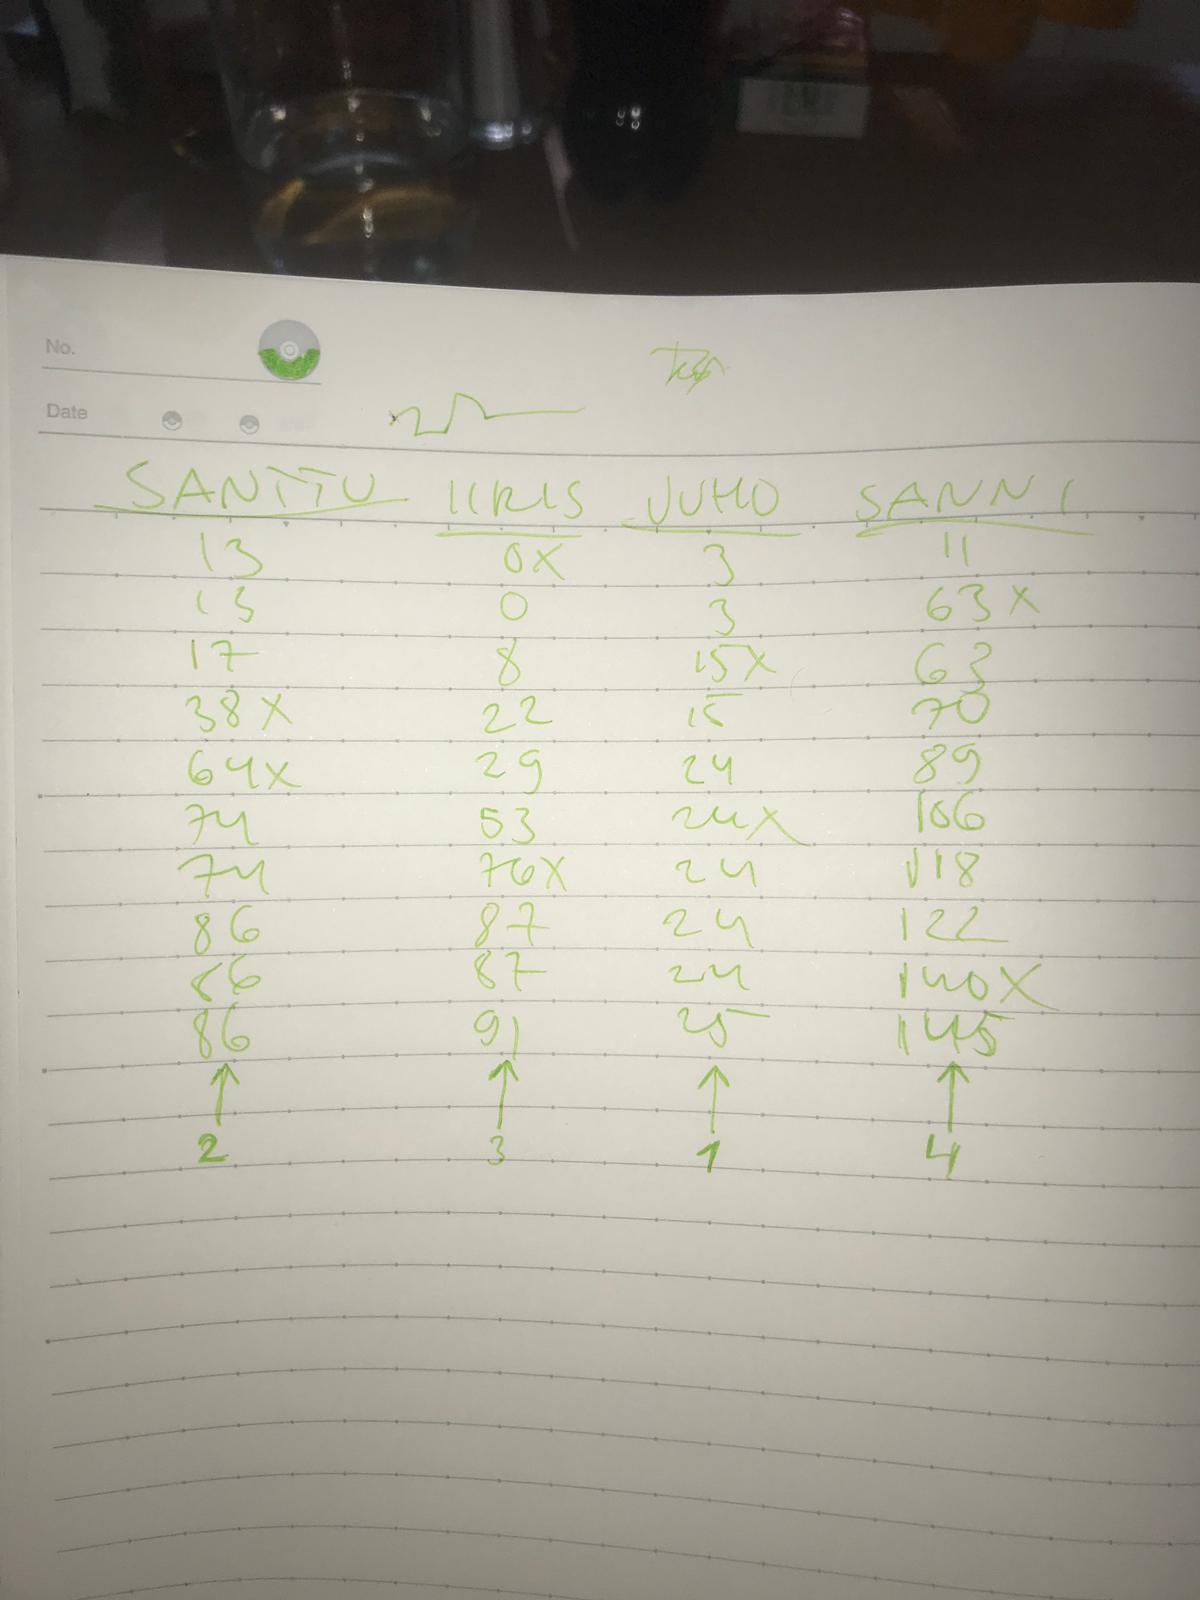 No.
Date
SANTTU IIRIS JUHO SANNI
13 0X 3 11
13 0 3 63X
17 8 15X 63
38X 22 15 70
64X 29 24 89
74 53 24X 106
74 76X 24 118
86 87 24 122
86 87 24 140X
86 91 25 145
2 3 1 4